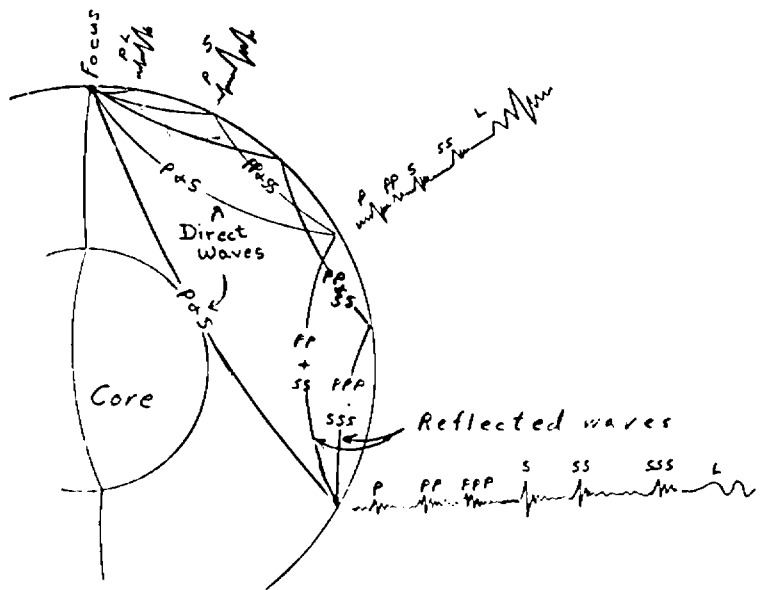 Focus
P L
P S
P PP S SS L
P & S
PP & SS
Direct
waves
P & S
PP
&
SS
PP
+
SS
PPP
SSS
Core
Reflected waves
P PP PPP S SS SSS L